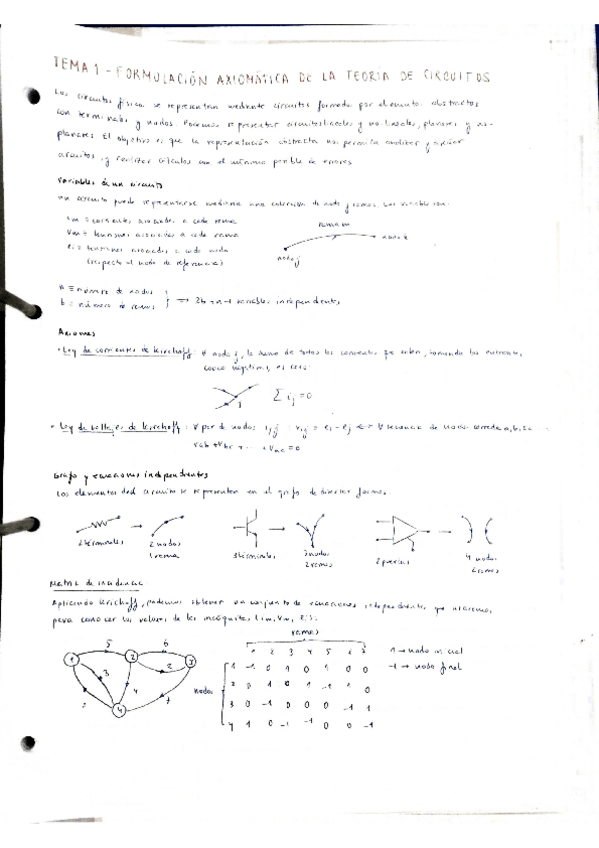 TEMA 1 - FORMULACIÓN AXIOMÁTICA DE LA TEORIA DE CIRCUITOS
Los circuitos físicos se representan mediante circuitos formados por elementos abstractos
con terminales y nudos. Podemos representar circuitos lineales y no-lineales, planares y no-
planares. El objetivo es que la representación abstracta nos permita analizar y
circuitos, y realizar cálculos con el mínimo posible de errores
Variables de un circuito
un circuito puede representarse mediante una colección de nodos y ramas. Las variables son:
im ≡ corrientes asociadas a cada rama
Vm ≡ tensiones asociadas a cada rama
ei ≡ tensiones asociadas a cada nodo
(respecto al nodo de referencia)
rama m
nodo k
nodo j
n ≡ número de nodos
b ≡ número de ramas
⇒ 2b+n-1 variables independientes
Axiomas
· Ley de corrientes de Kirchoff: ∀ nodo j, la suma de todas las corrientes que salen, tomando las entrantes
como negativas, es cero:
j
∑ ij = 0
· Ley de voltajes de Kirchoff: ∀ par de nodos i, j : vij = ei - ej ⇔ ∀ secuencia de nodos cerrada a, b, c...
Vab + Vbc + ... + Vnc = 0
Grafo y ecuaciones independientes
Los elementos del circuito se representan en el grafo de diversas formas.
2 terminales
2 nodos
1 rama
3 terminales
3 nodos
2 ramas
2 puertas
4 nodos
2 ramas
Matriz de incidencia
Aplicando Kirchoff, podemos obtener un conjunto de ecuaciones independientes que
para conocer los valores de las incógnitas (im, Vm, ei):
1 2 3 4
5 6 3 2 4 7
ramas
1 2 3 4 5 6 7 8
nodos
1 -1 0 1 0 1 0 0
2 0 1 0 1 -1 1 0
3 0 -1 0 0 0 -1 1
4 1 0 -1 -1 0 0 -1
1 → nodo inicial
-1 → nodo final